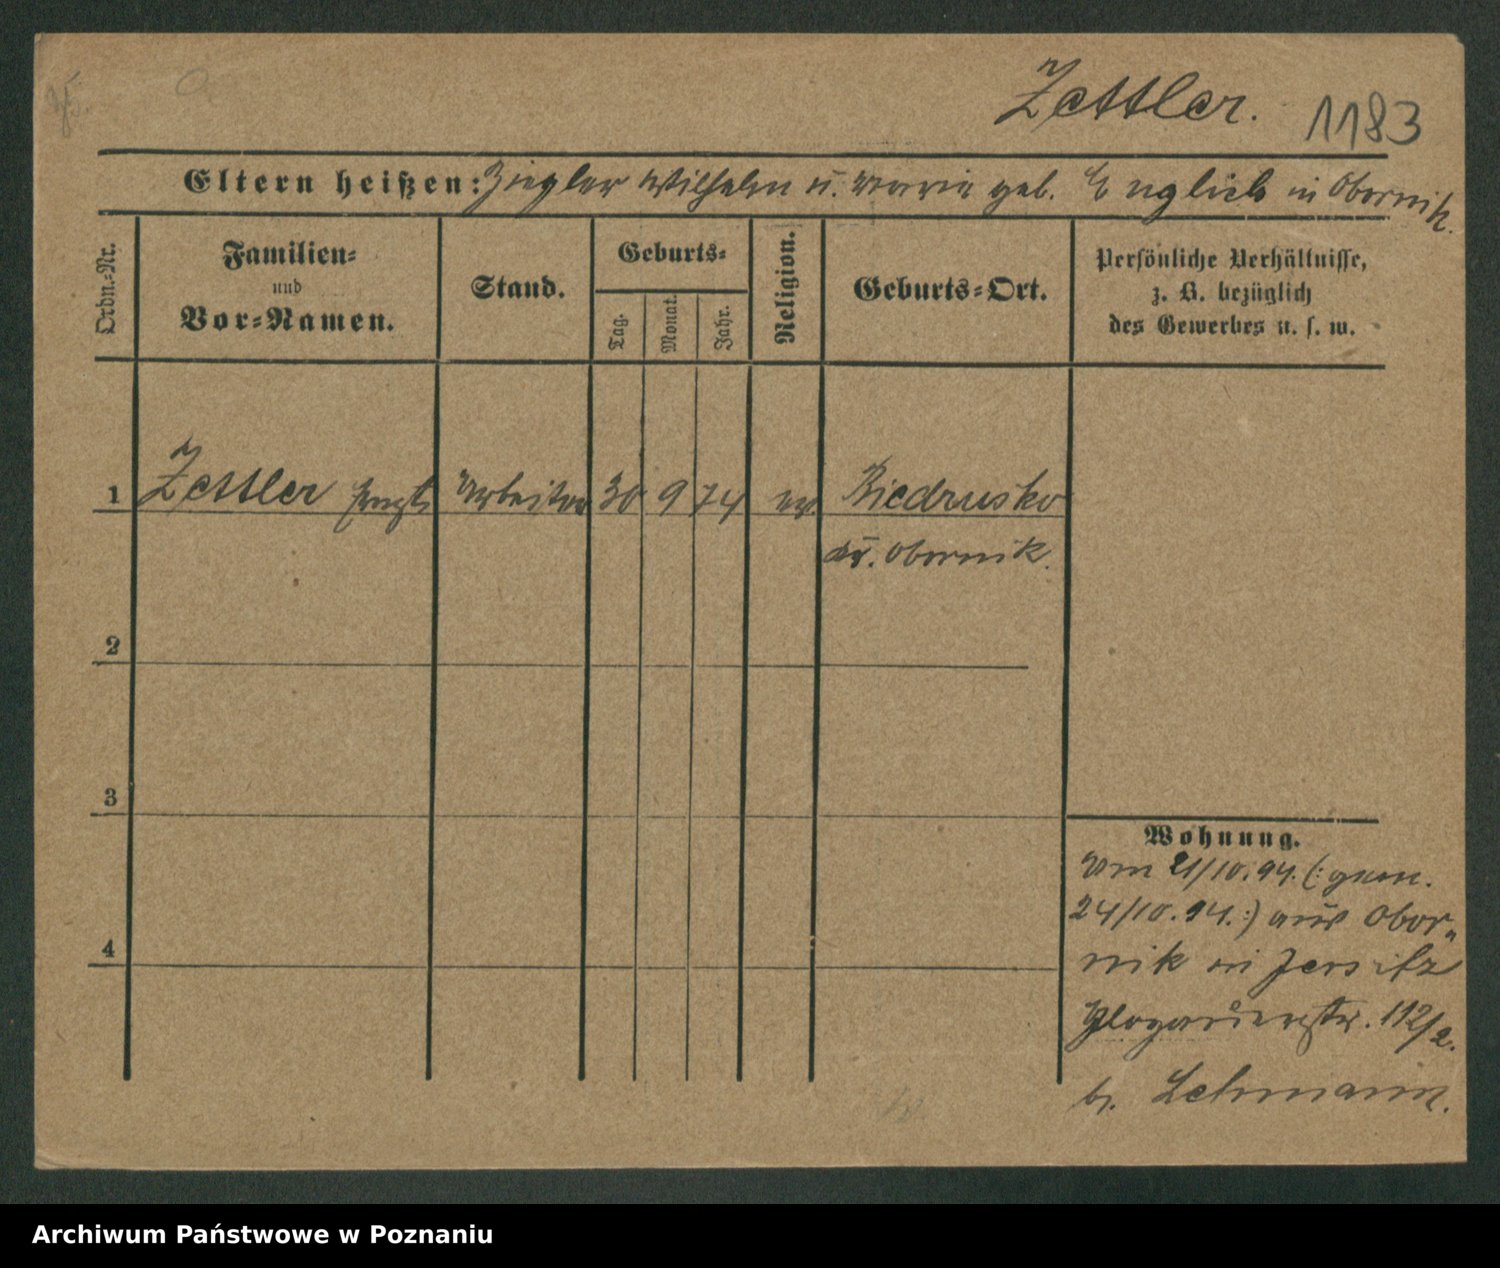 Zettler. 1183
Eltern heißen: Ziegler Wilhelm u. Maria geb. Englich in Obornik.
Ordn.-Nr.
Familien-
und
Vor-Namen.
Stand.
Geburts-
Tag.
Monat.
Jahr.
Religion.
Geburts-Ort.
Persönliche Verhältnisse,
z. B. bezüglich
des Gewerbes u. s. w.
1 Zettler Arbeiter 30 9 74 ev. Biedrusko
Kr. Obornik.
2
3
4
Wohnung.
Vom 21/10.94. (: gem.
24/10.94.:) aus Obor-
nik in Jersitz
Glogauerstr. 112/2.
b. Lehmann.
Archiwum Państwowe w Poznaniu